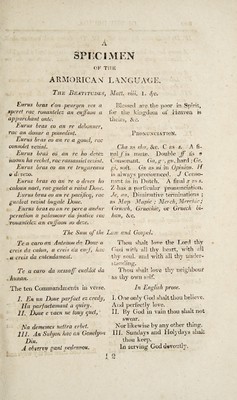 A
SPECIMEN
OF THE
ARMORICAN LANGUAGE.
THE BEATITUDES, Matt. viii, 1. &c.
Eurus beus s'an peuryen var a
speret rac rouantelez an
apparchant ouic.
Eurus beus eo an re debonner,
rac an douar a piaoudint.
Eurus beus eo an re a gouel, rac
consolet vezint.
Eurus beus eo an re ho deves
naoun ha sechet, rac rassasiet vezint.
Eurus beus eo an re trugarezus
Eurus beus eo an re a deves ho
caloun nact, rac guelet a raint Doue.
Eurus beus eo an re pacific, rac
guelvet vezint bugale Doue.
Eurus beus eo an re pere a
persecution a palamour da justice rac
rouantelez an euffaou so deze.
Blessed are the poor in Spirit,
for the kingdom of Heaven is
theirs, &c.
PRONUNCIATION.
Cha as sha, &c. C as s. A fi-
nal f is mute. Double ff is a
Consonant. Ga, g; ge, hard; Ge,
gi, soft. Go as ni in Opinion. H
is always pronounced. J Conso-
nant as in Dutch. Z final
Z has a particular pronunciation.
Ic, an, Diminutive terminations;
as Map Mapic; Merch, Merchic;
Gruech, Gruechic, or Gruech bi-
han, &c.
The Sum of the Law and Gospel.
Te a caro an Autrou da Doue a
creis da calon, a creis da eneff, hac
a creis da entendamant.
Te a caro da nessaff eveldot da
hunan.
Thou shalt love the Lord thy
God with all thy heart, with all
thy soul, and with all thy under-
standing.
Thou shalt love thy neighbour
as thy own self.
The ten Commandments in verse.
I. En un Doue parfaet ez creely,
Ha parfaetamant a quiry.
II. Doue e vaen ne touy quet,
No demeuce netra erbet.
III. An Sulyou hac an Gouelyou
Diu,
A observy gant pedennou.
In English prose.
I. One only God shalt thou believe.
And perfectly love.
II. By God in vain thou shalt not
swear.
Nor likewise by any other thing.
III. Sundays and Holydays shalt
thou keep.
In serving God devoutly.
1 2